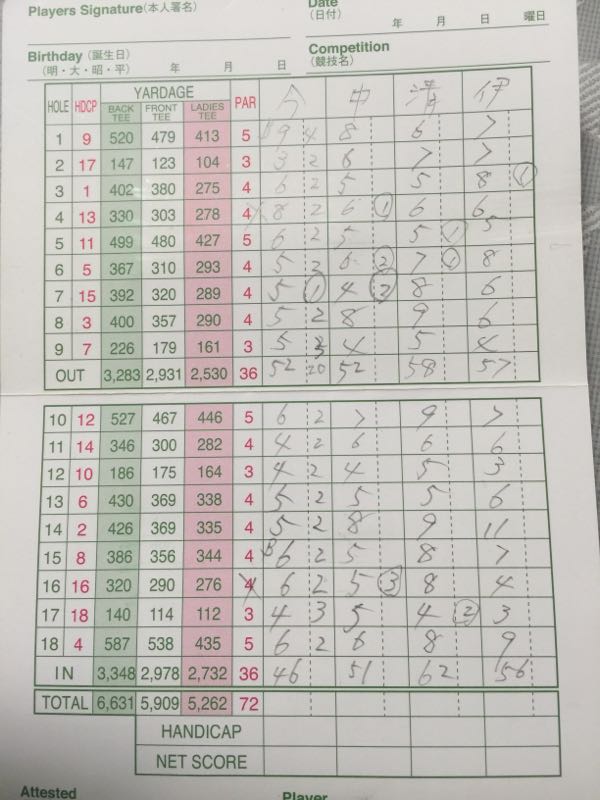 Players Signature(本人署名)
Date
(日付) 年 月 日 曜日
Birthday (誕生日)
(明・大・昭・平) 年 月 日
Competition
(競技名)
HOLE HDCP YARDAGE PAR 今 中 清 伊
BACK TEE FRONT TEE LADIES TEE
1 9 520 479 413 5 9 4 8 6 7
2 17 147 123 104 3 3 2 6 7 7
3 1 402 380 275 4 6 2 5 5 8 1
4 13 330 303 278 4 8 2 6 1 6 6
5 11 499 480 427 5 6 2 5 5 1 5
6 5 367 310 293 4 5 2 6 2 7 1 8
7 15 392 320 289 4 5 1 4 3 8 6
8 3 400 357 290 4 5 2 8 9 6
9 7 226 179 161 3 5 3 4 5 4
OUT 3,283 2,931 2,530 36 52 20 52 58 57
10 12 527 467 446 5 6 2 7 9 7
11 14 346 300 282 4 4 2 6 6 6
12 10 186 175 164 3 4 2 4 5 3
13 6 430 369 338 4 5 2 5 5 6
14 2 426 369 335 4 5 2 8 9 11
15 8 386 356 344 4 B 6 2 5 8 7
16 16 320 290 276 4 6 2 5 3 8 4
17 18 140 114 112 3 4 3 5 4 2 3
18 4 587 538 435 5 6 2 6 8 9
IN 3,348 2,978 2,732 36 46 51 62 56
TOTAL 6,631 5,909 5,262 72
HANDICAP
NET SCORE
Attested Player